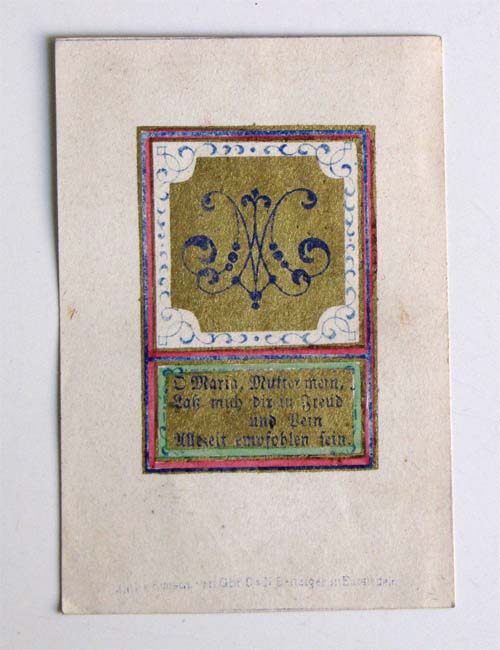 O Maria, Mutter mein,
Laß mich dir in Freud
und Pein
Allezeit empfohlen sein.
Gbr. C. & N. Benziger in Einsiedeln